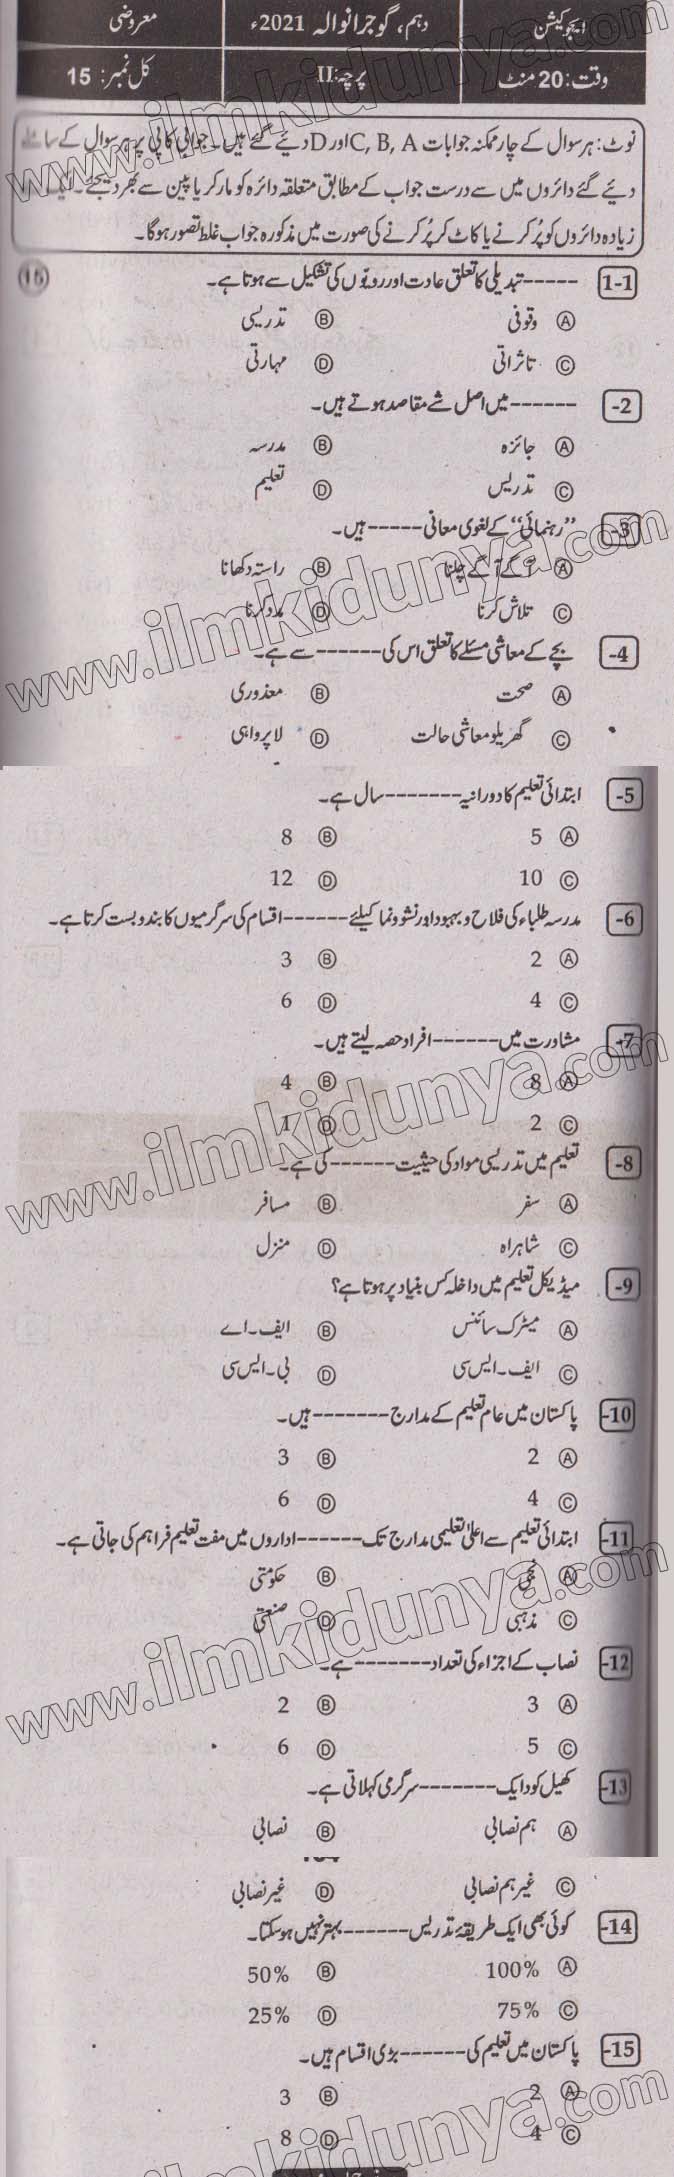 ایجوکیشن دہم، گوجرانوالہ 2021ء معروضی
وقت: 20 منٹ پرچہ: II کل نمبر: 15
نوٹ: ہر سوال کے چار ممکنہ جوابات C, B, A اور D دیئے گئے ہیں۔ جوابی کاپی پر ہر سوال کے سامنے
دیئے گئے دائروں میں سے درست جواب کے مطابق متعلقہ دائرہ کو مارکر یا پین سے بھر دیجئے۔ ایک
زیادہ دائروں کو پُر کرنے یا کاٹ کر پُر کرنے کی صورت میں مذکورہ جواب غلط تصور ہوگا۔
1-1 ----- تبدیلی کا تعلق عادت اور رویّوں کی تشکیل سے ہوتا ہے۔ (15)
Ⓐ وقوفی Ⓑ تدریسی
Ⓒ تاثراتی Ⓓ مہارتی
-2 ------ میں اصل شے مقاصد ہوتے ہیں۔
Ⓐ جائزہ Ⓑ مدرسہ
Ⓒ تدریس Ⓓ تعلیم
-3 ”رہنمائی“ کے لغوی معانی ----- ہیں۔
Ⓐ آگے آگے چلنا Ⓑ راستہ دکھانا
Ⓒ تلاش کرنا Ⓓ مدد کرنا
-4 بچے کے معاشی مسئلے کا تعلق اس کی ------ سے ہے۔
Ⓐ صحت Ⓑ معذوری
Ⓒ گھریلو معاشی حالت Ⓓ لاپرواہی
-5 ابتدائی تعلیم کا دورانیہ ------- سال ہے۔
Ⓐ 5 Ⓑ 8
Ⓒ 10 Ⓓ 12
-6 مدرسہ طلباء کی فلاح و بہبود اور نشوونما کیلئے ------ اقسام کی سرگرمیوں کا بندوبست کرتا ہے۔
Ⓐ 2 Ⓑ 3
Ⓒ 4 Ⓓ 6
-7 مشاورت میں ------ افراد حصہ لیتے ہیں۔
Ⓐ 8 Ⓑ 4
Ⓒ 2 Ⓓ 1
-8 تعلیم میں تدریسی مواد کی حیثیت ------ کی ہے۔
Ⓐ سفر Ⓑ مسافر
Ⓒ شاہراہ Ⓓ منزل
-9 میڈیکل تعلیم میں داخلہ کس بنیاد پر ہوتا ہے؟
Ⓐ میٹرک سائنس Ⓑ ایف۔اے
Ⓒ ایف۔ایس سی Ⓓ بی۔ایس سی
-10 پاکستان میں عام تعلیم کے مدارج ------- ہیں۔
Ⓐ 2 Ⓑ 3
Ⓒ 4 Ⓓ 6
-11 ابتدائی تعلیم سے اعلیٰ تعلیمی مدارج تک ------ اداروں میں مفت تعلیم فراہم کی جاتی ہے۔
Ⓐ نجی Ⓑ حکومتی
Ⓒ مذہبی Ⓓ صنعتی
-12 نصاب کے اجزاء کی تعداد ------- ہے۔
Ⓐ 3 Ⓑ 2
Ⓒ 5 Ⓓ 6
-13 کھیل کود ایک ------- سرگرمی کہلاتی ہے۔
Ⓐ ہم نصابی Ⓑ نصابی
Ⓒ غیر ہم نصابی Ⓓ غیر نصابی
-14 کوئی بھی ایک طریقۂ تدریس ------ بہتر نہیں ہوسکتا۔
Ⓐ 100% Ⓑ 50%
Ⓒ 75% Ⓓ 25%
-15 پاکستان میں تعلیم کی ------ بڑی اقسام ہیں۔
Ⓐ 2 Ⓑ 3
Ⓒ 4 Ⓓ 8
www.ilmkidunya.com
www.ilmkidunya.com
www.ilmkidunya.com
www.ilmkidunya.com
www.ilmkidunya.com